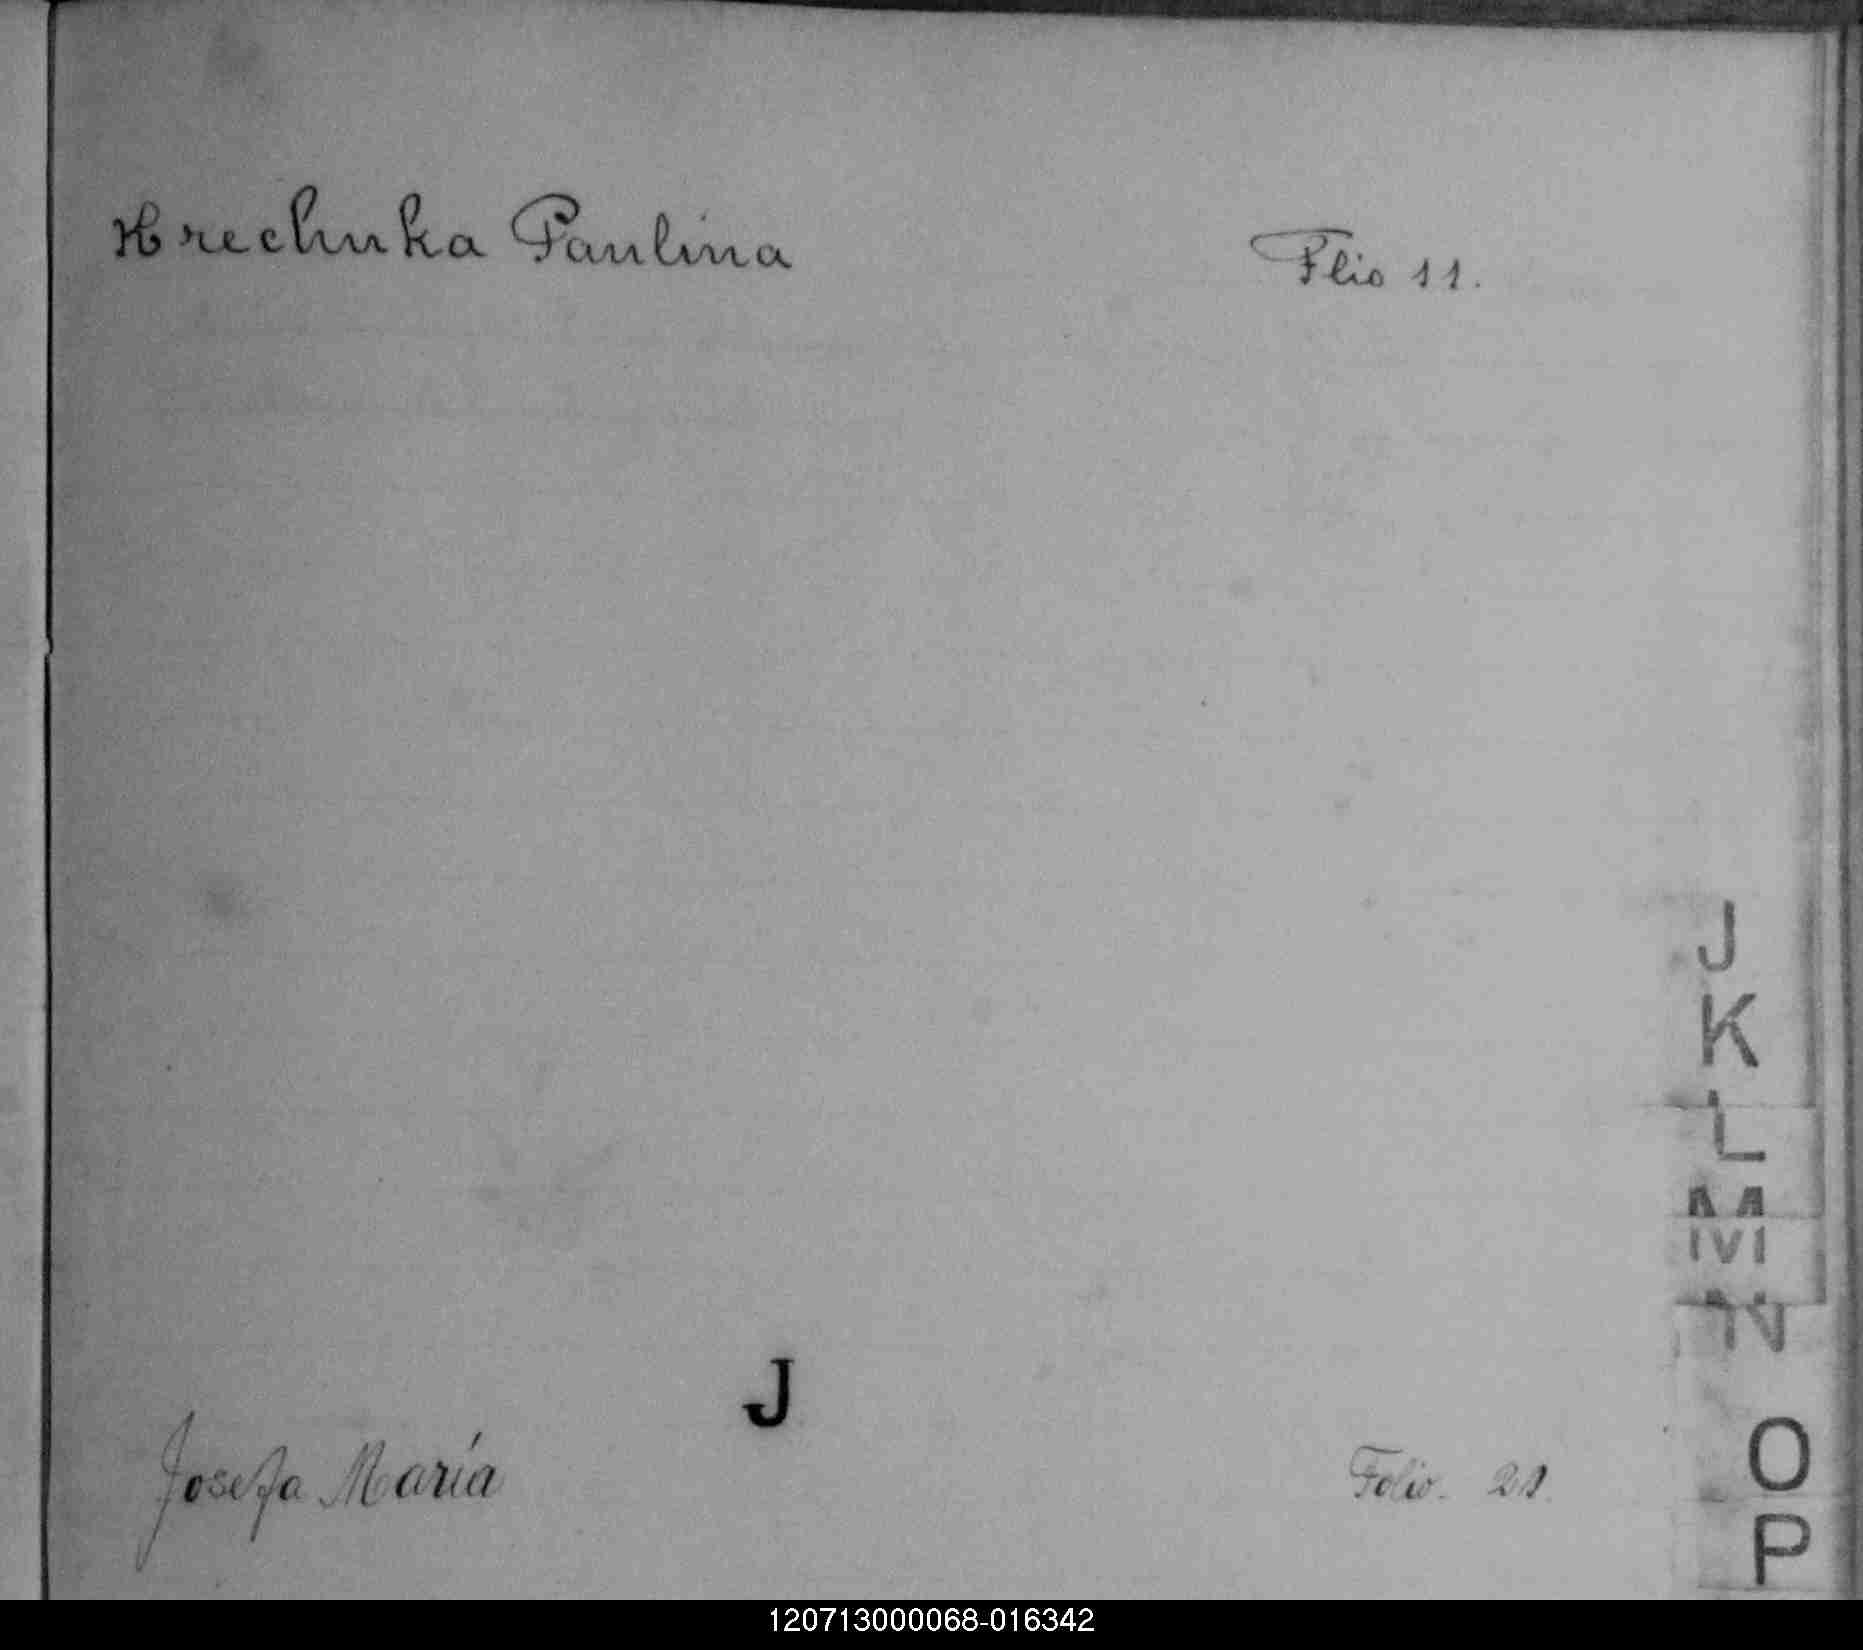 Hrechuka Paulina Flio 11.
J
K
L
M
N
J
Josefa María Folio. 21.
O
P
120713000068-016342